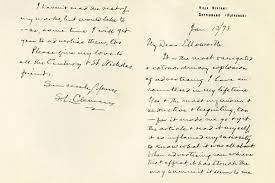 VILLA VIVIANI
SETTIGNANO (FLORENCE)
Jan 17/93
My Dear Ellsworth
It is the most
extraordinary explosion
of advertising I have en-
countered in my lifetime
Yes & the most ingenious &
seductive & beguiling, too
for it made me go & get
the article & read it myself
it so inflamed my curiosity
to know what it was all about
When advertising can achieve
that effect it has struck the
it seems to me
I haven't read the rest of
my works, but would like to
some time I will get
you to advertise them, too
Please give my love to
all the Century & St Nicholas
friends.
Sincerely Yours
S L Clemens